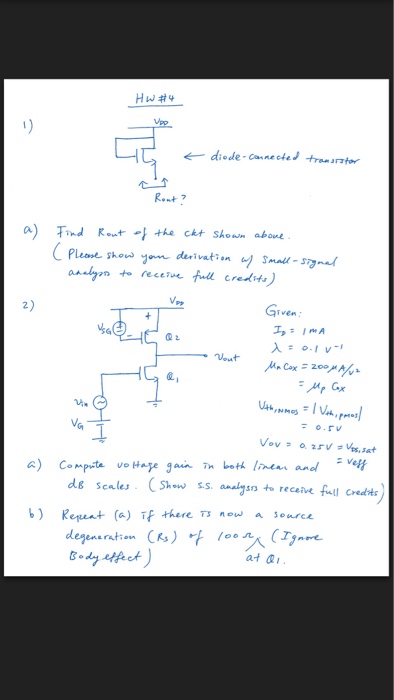 HW #4
1)
VDD
← diode-connected transistor
Rout?
a) Find Rout of the ckt shown above.
(Please show your derivation w/ small-signal
analysis to receive full credits)
2)
VDD
Given:
+
VSG
-
Q2
ID = 1mA
λ = 0.1 V⁻¹
Vout
μn Cox = 200 μA/V²
= μp Cox
Q1
Vin
Vth,NMOS = |Vth,pmos|
= 0.5V
VG
Vov = 0.25V = VDS,sat
= Veff
a) Compute voltage gain in both linear and
dB scales. (Show s.s. analysis to receive full credits)
b) Repeat (a) if there is now a source
degeneration (Rs) of 100Ω (Ignore
Body effect)
at Q1.